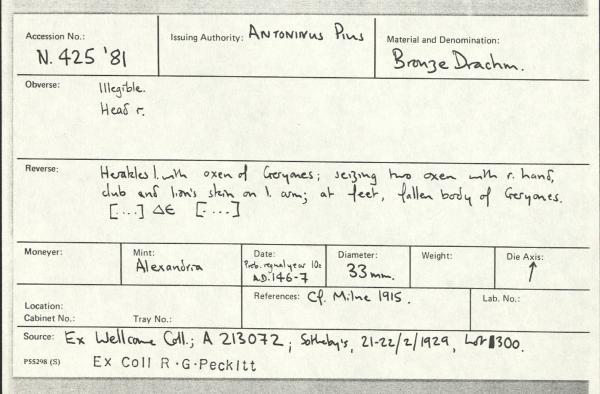 Accession No.:
N. 425 '81
Issuing Authority: Antoninus Pius
Material and Denomination:
Bronze Drachm.
Obverse: Illegible.
Head r.
Reverse: Herakles l. with oxen of Geryones; seizing two oxen with r. hand,
club and lion's skin on l. arm; at feet, fallen body of Geryones.
[...] ΔΕ [....]
Moneyer:
Mint:
Alexandria
Date:
Prob. regnal year 10=
A.D. 146-7
Diameter:
33 mm.
Weight:
Die Axis:
↑
Location:
Cabinet No.: Tray No.:
References: Cf. Milne 1915.
Lab. No.:
Source: Ex Wellcome Coll.; A 213072; Sotheby's, 21-22/2/1929, Lot 300.
P55298 (S) Ex Coll R.G.Peckitt